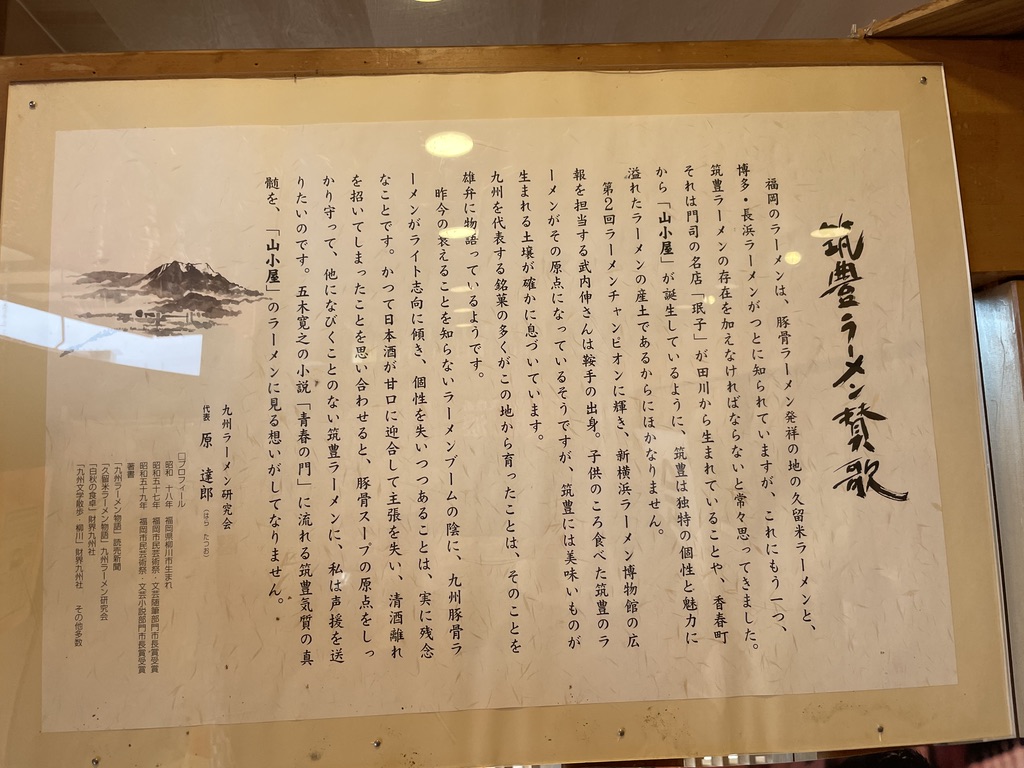 筑豊ラーメン賛歌
福岡のラーメンは、豚骨ラーメン発祥の地の久留米ラーメンと、
博多・長浜ラーメンがつとに知られていますが、これにもう一つ、
筑豊ラーメンの存在を加えなければならないと常々思ってきました。
それは門司の名店「珉子」が田川から生まれていることや、香春町
から「山小屋」が誕生しているように、筑豊は独特の個性と魅力に
溢れたラーメンの産土であるからにほかなりません。
第2回ラーメンチャンピオンに輝き、新横浜ラーメン博物館の広
報を担当する武内伸さんは鞍手の出身。子供のころ食べた筑豊のラ
ーメンがその原点になっているそうですが、筑豊には美味いものが
生まれる土壌が確かに息づいています。
九州を代表する銘菓の多くがこの地から育ったことは、そのことを
雄弁に物語っているようです。
昨今の衰えることを知らないラーメンブームの陰に、九州豚骨ラ
ーメンがライト志向に傾き、個性を失いつつあることは、実に残念
なことです。かつて日本酒が甘口に迎合して主張を失い、清酒離れ
を招いてしまったことを思い合わせると、豚骨スープの原点をしっ
かり守って、他になびくことのない筑豊ラーメンに、私は声援を送
りたいのです。五木寛之の小説「青春の門」に流れる筑豊気質の真
髄を、「山小屋」のラーメンに見る想いがしてなりません。
九州ラーメン研究会
代表 原 達郎 (はら たつお)
□プロフィール
昭和 十八年 福岡県柳川市生まれ
昭和五十七年 福岡市民芸術祭・文芸随筆部門市長賞受賞
昭和五十九年 福岡市民芸術祭・文芸小説部門市長賞受賞
著書
「九州ラーメン物語」読売新聞
「久留米ラーメン物語」九州ラーメン研究会
「白秋の食卓」財界九州社
「九州文学散歩 柳川」財界九州社 その他多数